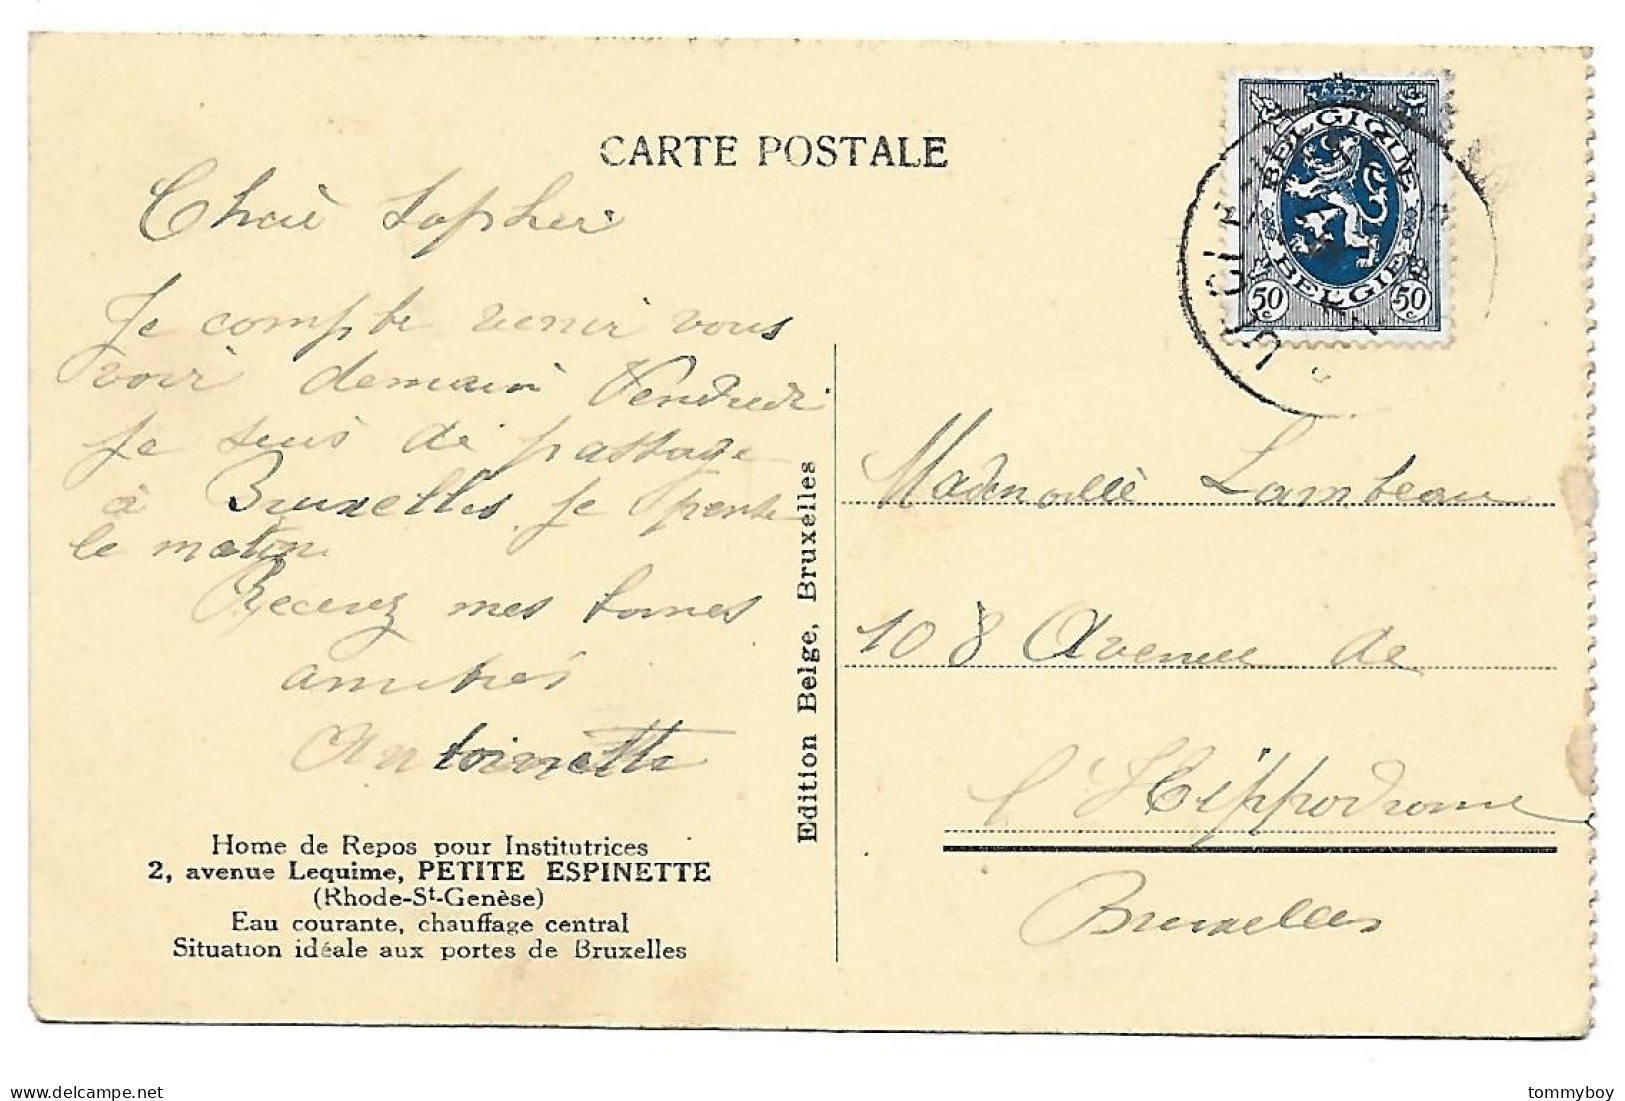 CARTE POSTALE
BELGIQUE
BELGIË
50 c 50 c
UCCLE
Chère
Je compte venir vous
voir demain Vendredi
je suis de passage
à Bruxelles je
le matin
Recevez mes bonnes
amitiés
Antoinette
Home de Repos pour Institutrices
2, avenue Lequime, PETITE ESPINETTE
(Rhode-St-Genèse)
Eau courante, chauffage central
Situation idéale aux portes de Bruxelles
Edition Belge, Bruxelles
Mademoiselle Lambeau
108 Avenue de
l'Hippodrome
Bruxelles
tommyboy